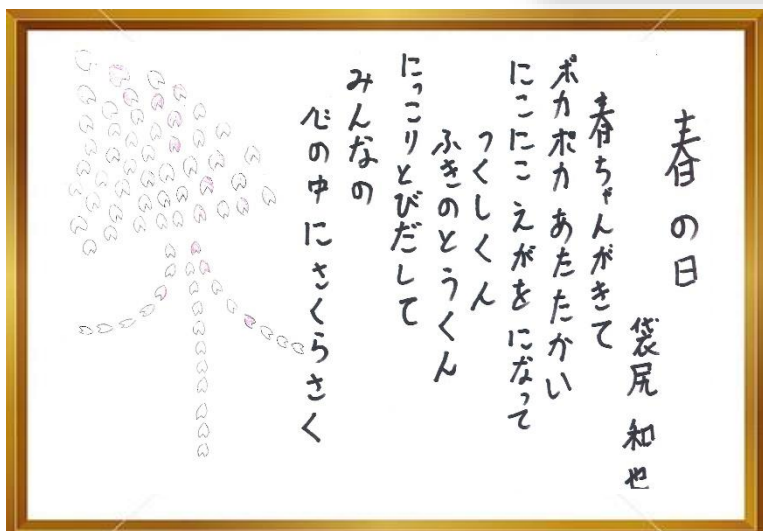 春の日
袋尻 和也
春ちゃんがきて
ポカポカ あたたかい
にこにこ えがをになって
つくしくん
ふきのとうくん
にっこりとびだして
みんなの
心の中にさくらさく